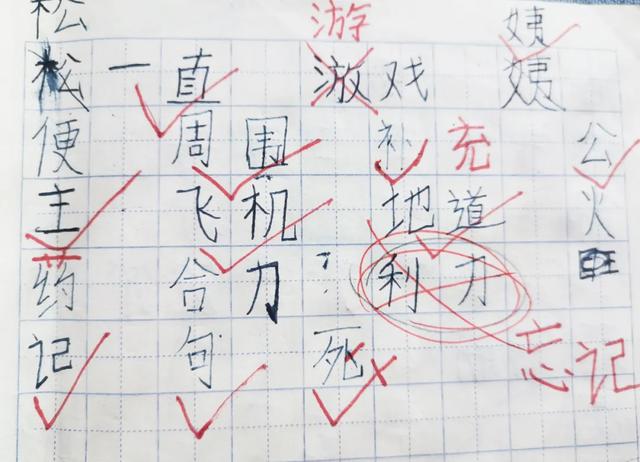 松 游 姨
一直 游戏 姨
便 周围 补充 公
主 飞机 地道 火
药 合力 利力
忘记
记 句 死